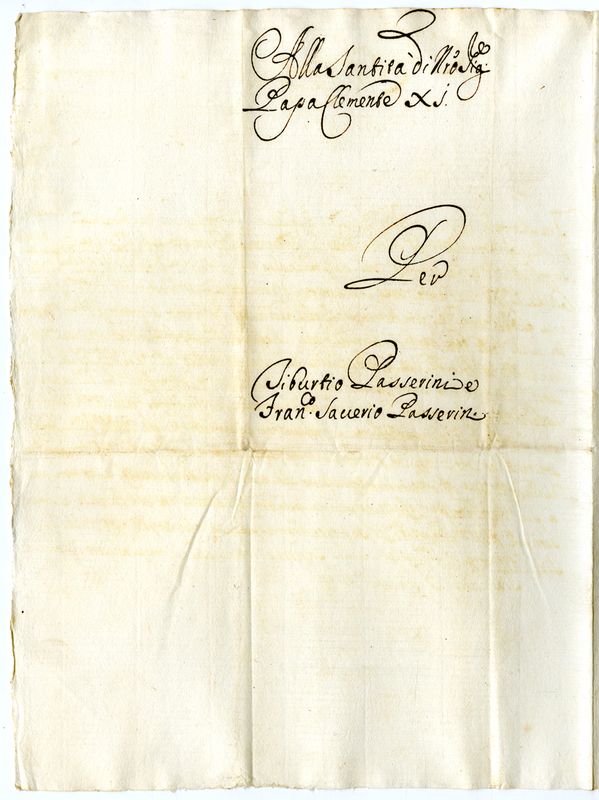 Alla Santità di Nrõ Sig.re
Papa Clemente XI.
Per
Tiburtio Passerini e
Fran.co Sauerio Passerini